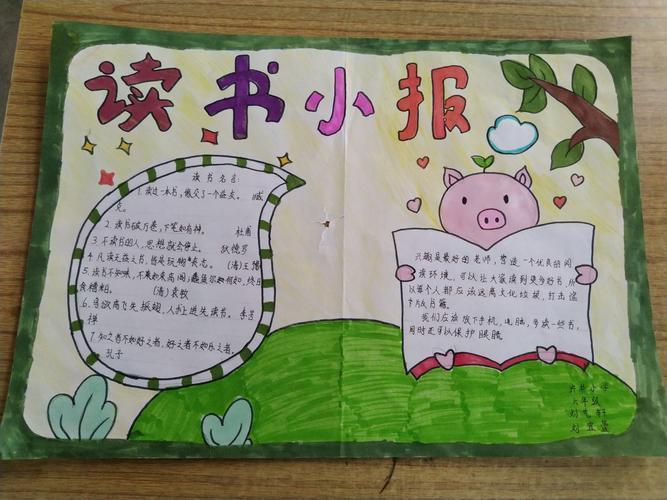 读书小报
读书名言:
1. 读过一本书,像交了一个益友。 臧
克。
2. 读书破万卷,下笔如有神。 杜甫
3. 不读书的人,思想就会停止。 狄德罗
4. 凡读无益之书,皆是玩物丧志。 (清)王豫
5. 读书不知味,不如束高阁;蠹鱼尔何如,终日
食糟粕。 (清)袁牧
6. 鸟欲高飞先振翅,人求上进先读书。 李苦
禅
7. 知之者不如好之者,好之者不如乐之者。
孔子
兴趣是最好的老师,营造一个优良的阅
读环境,可以让大家读到更多好书,所
以每个人都应该远离文化垃圾,打击盗
版书籍。
我们应该放下手机,电脑,多读一些书,
同时还可以保护眼睛
小学
六年级
刘
刘